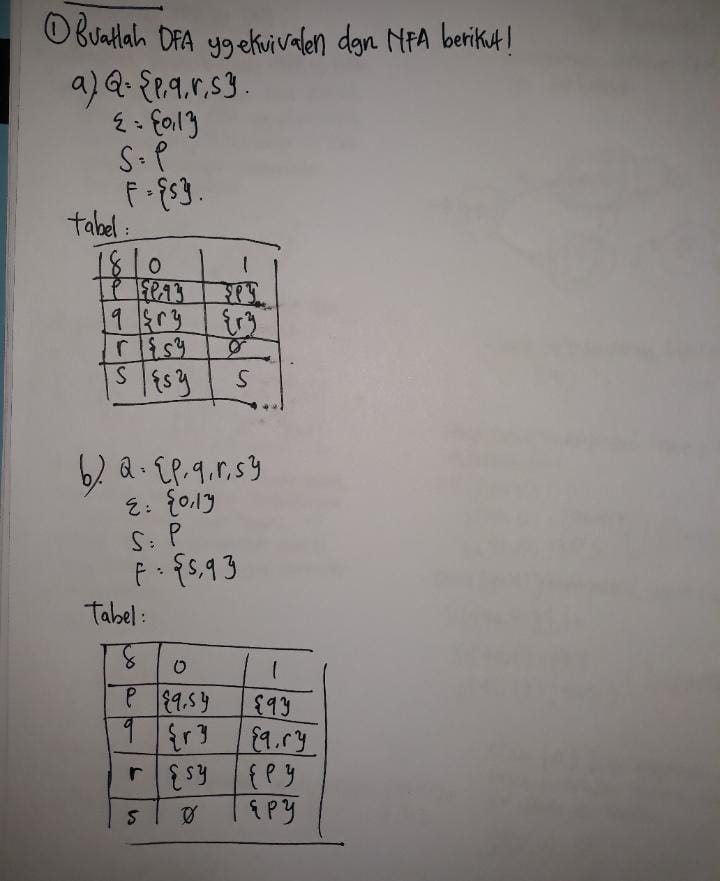 ① Buatlah DFA yg ekuivalen dgn NFA berikut!
a). Q = {p,q,r,s}.
Σ = {0,1}
S = p
F = {s}.
tabel :
δ 0 1
p {p,q} {p}
q {r} {r}
r {s} ∅
s {s} s
b). Q = {p,q,r,s}
Σ = {0,1}
S = p
F = {s,q}
Tabel :
δ 0 1
p {q,s} {q}
q {r} {q,r}
r {s} {p}
s ∅ {p}